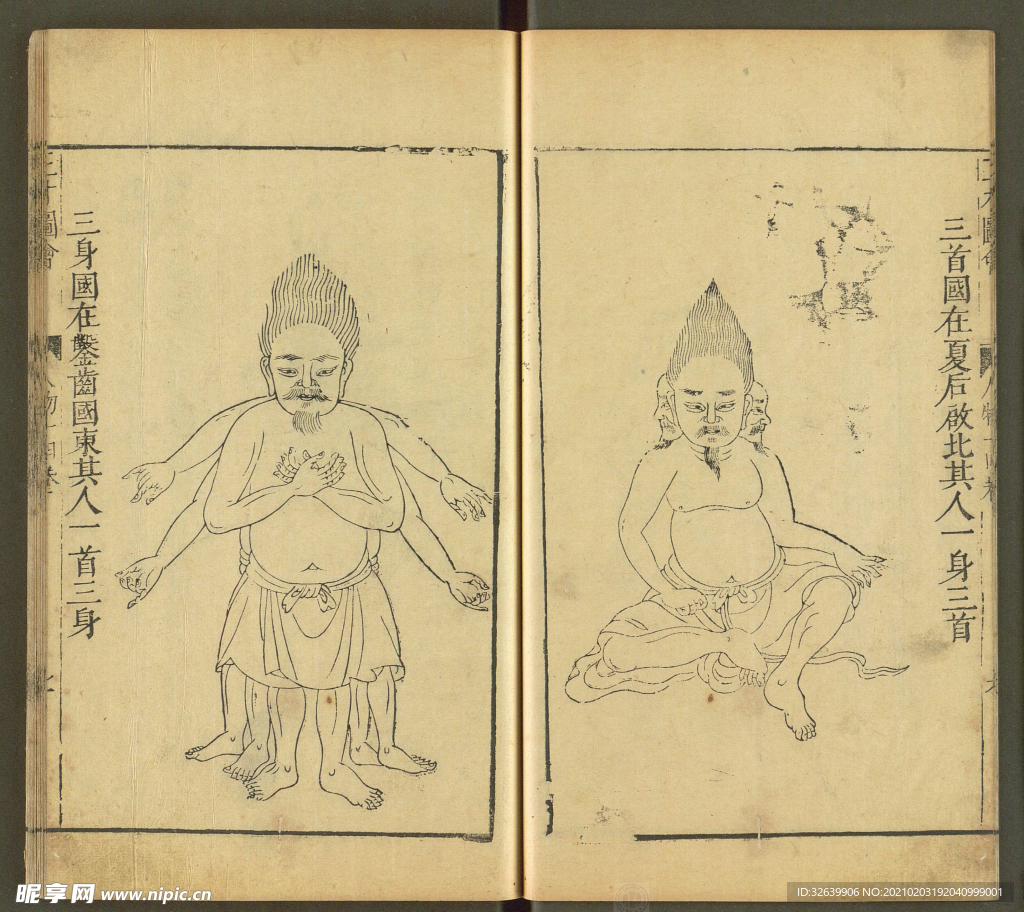 三首國在夏后啟北其人一身三首
三身國在鑿齒國東其人一首三身
圖會
昵享网 www.nipic.cn
ID:32639906 NO:20210203192040999001